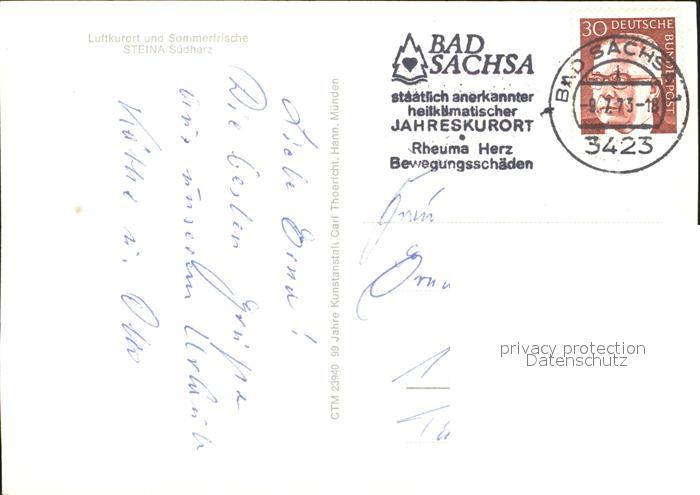 Luftkurort und Sommerfrische
STEINA/Südharz
Liebe Erna!
Die besten Grüße
aus unserem Urlaub
Käthe u. Otto
CTM 23940 99 Jahre Kunstanstalt Carl Thoericht, Hann. Münden
BAD
SACHSA
staatlich anerkannter
heilklimatischer
JAHRESKURORT
Rheuma Herz
Bewegungsschäden
30 DEUTSCHE
BUNDESPOST
BAD SACHSA
-9.7.73-18
3423
Frau
Erna
privacy protection
Datenschutz